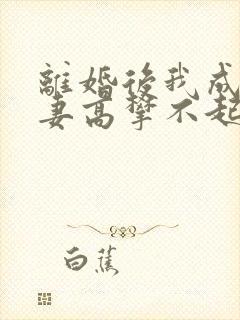 離婚後我成
妻高攀不起
白蕉